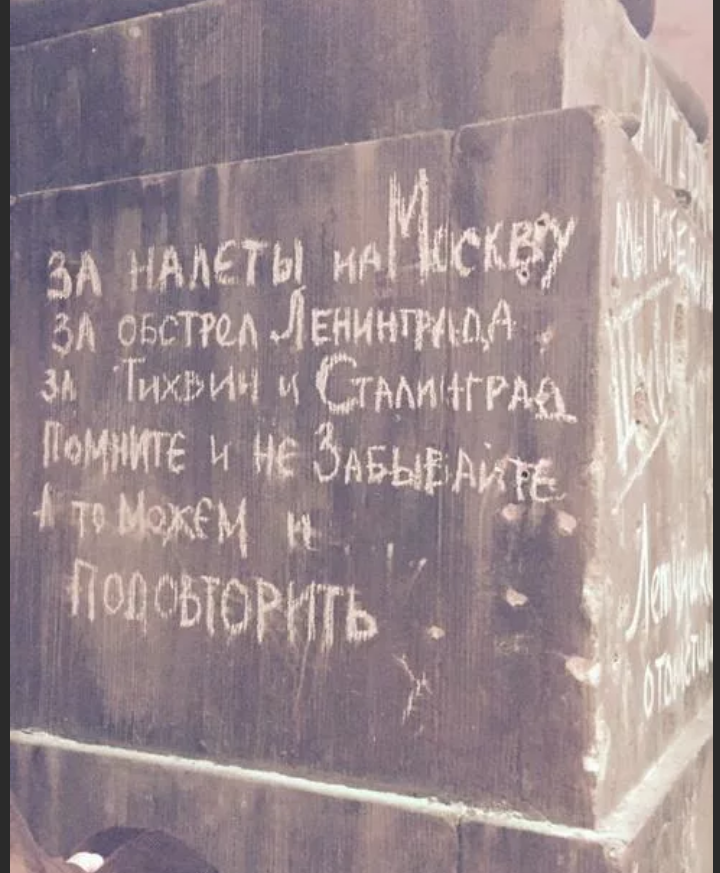 ЗА НАЛЕТЫ НА МОСКВУ
ЗА ОБСТРЕЛ ЛЕНИНГРАДА
ЗА ТИХВИН и СТАЛИНГРАД
ПОМНИТЕ И НЕ ЗАБЫВАЙТЕ
А то МОЖЕМ и
ПОДОВТОРИТЬ
МЫ